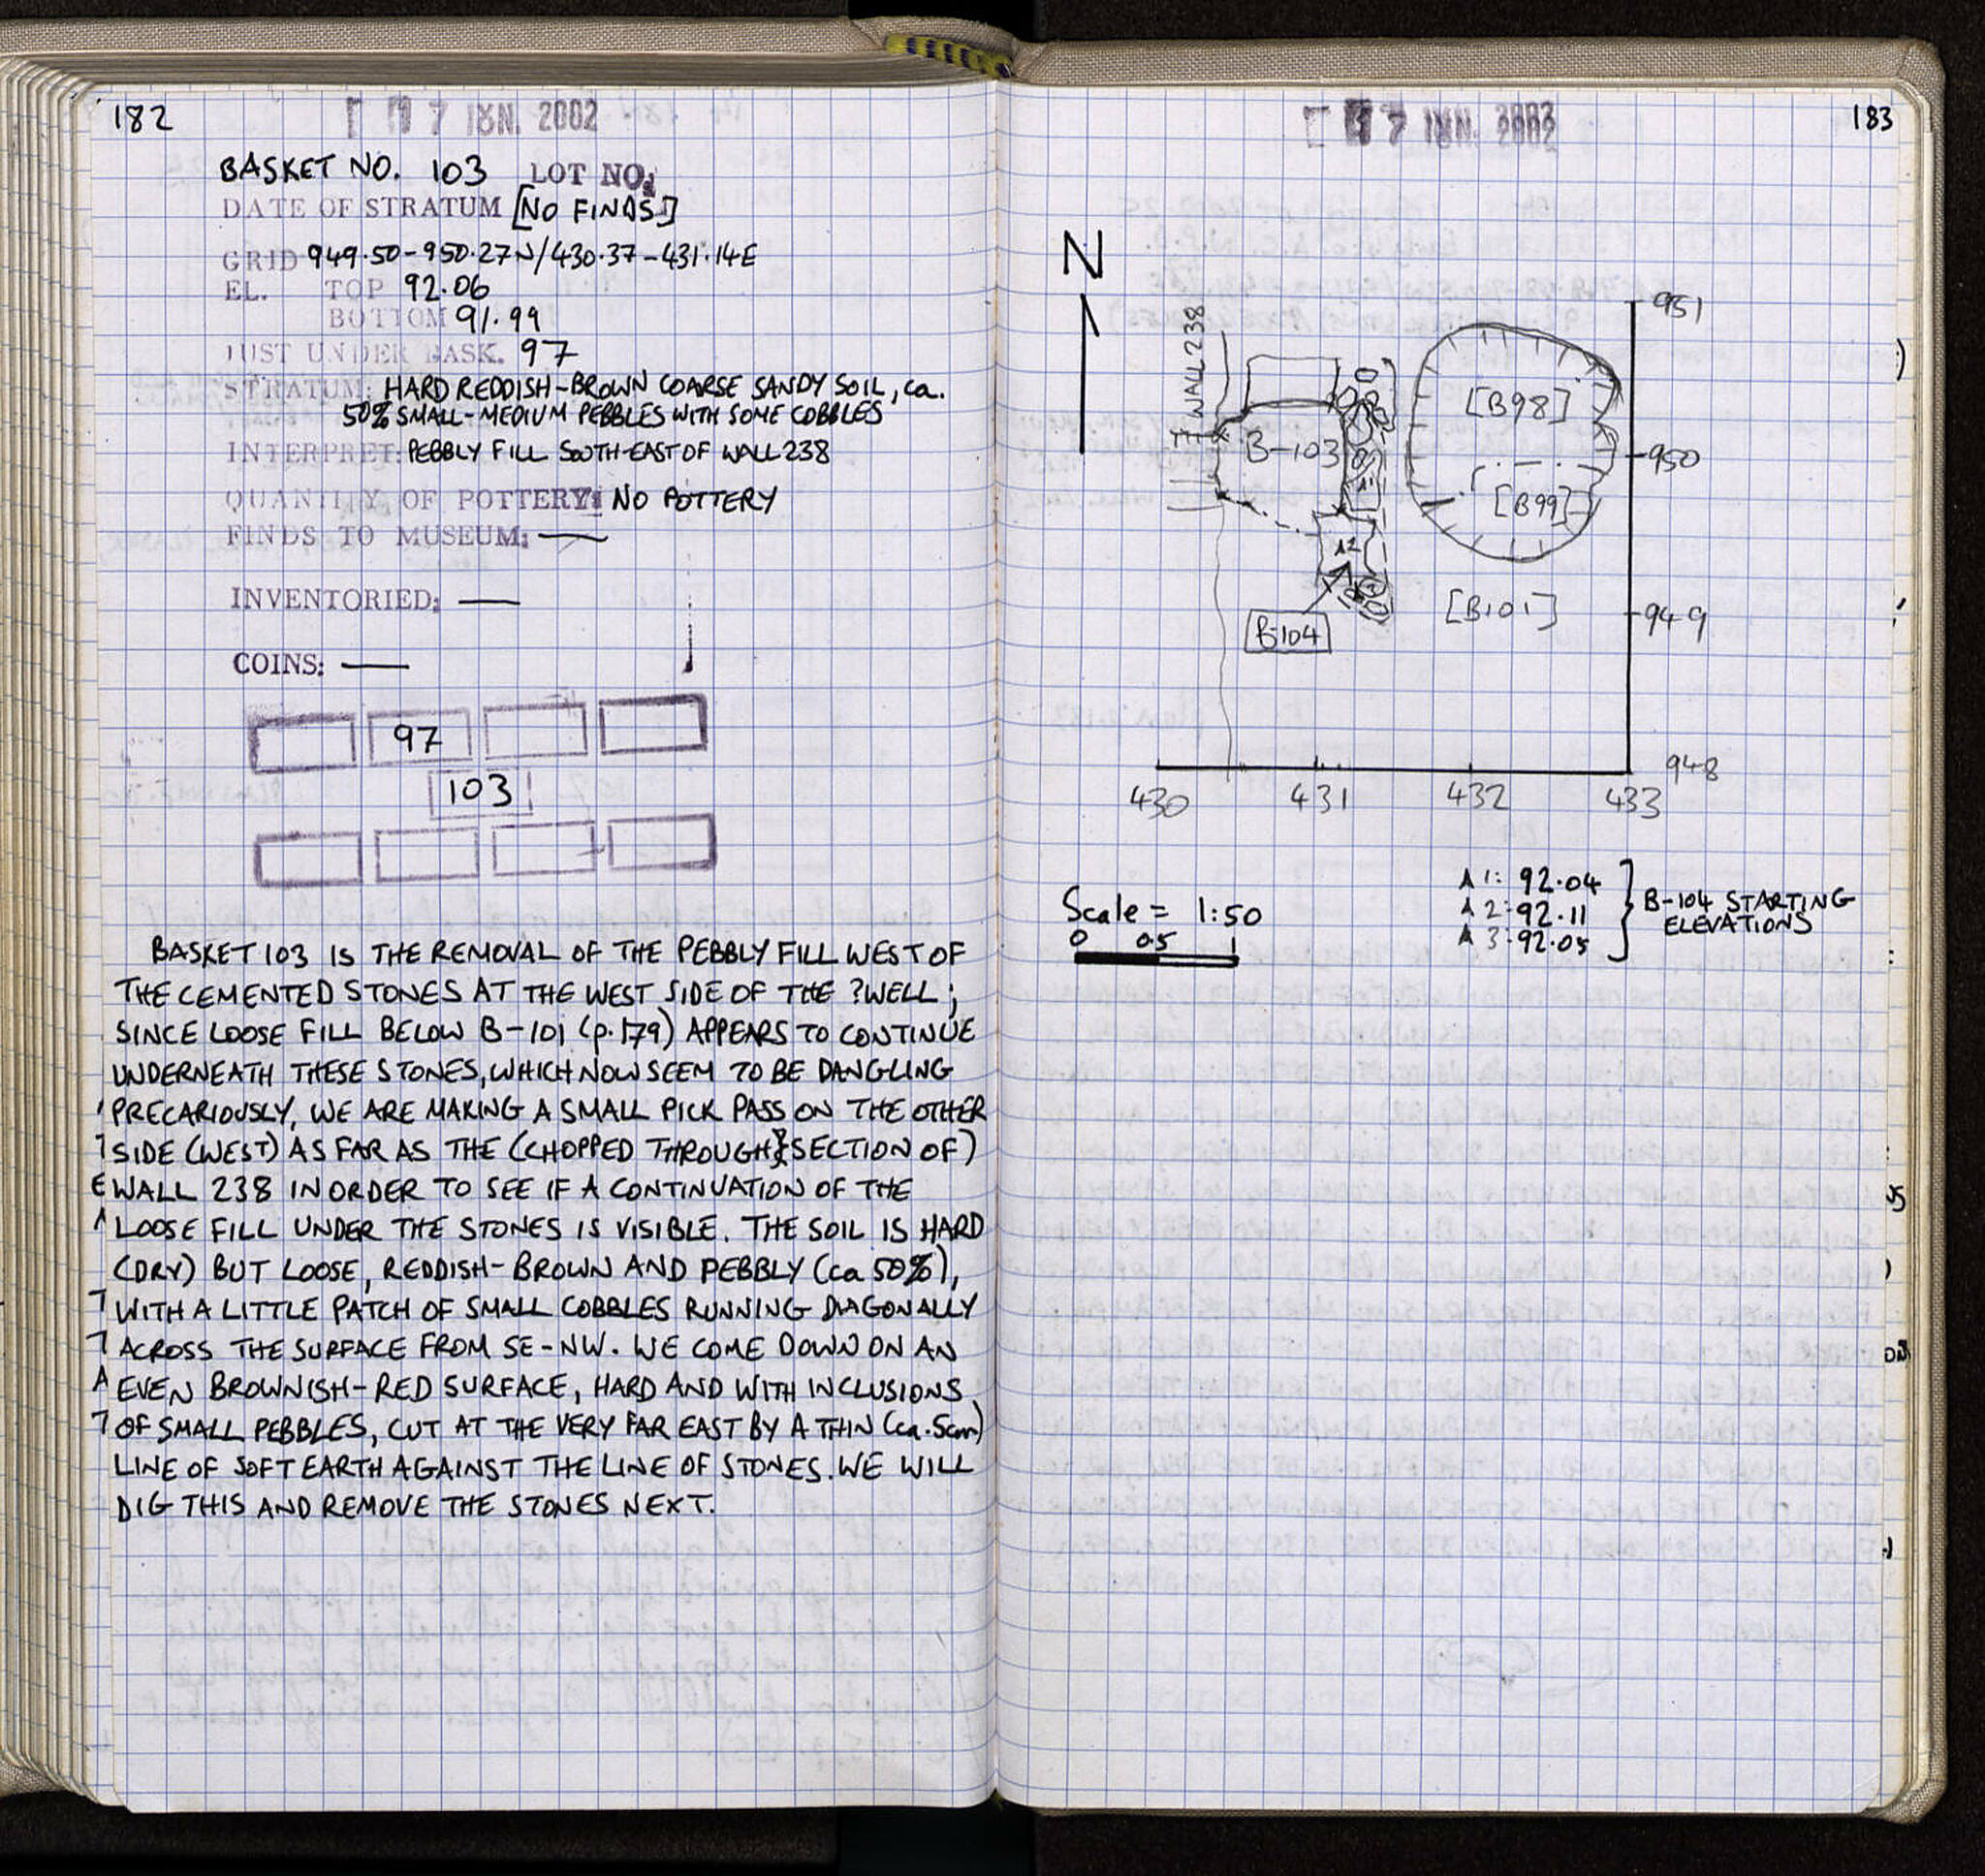 182
17 IUN. 2002
BASKET NO. 103 LOT NO.
DATE OF STRATUM [NO FINDS]
GRID 949.50-950.27N/430.37-431.14E
EL. TOP 92.06
BOTTOM 91.99
JUST UNDER BASK. 97
STRATUM: HARD REDDISH-BROWN COARSE SANDY SOIL, ca.
50% SMALL-MEDIUM PEBBLES WITH SOME COBBLES
INTERPRET: PEBBLY FILL SOUTH-EAST OF WALL 238
QUANTITY OF POTTERY: NO POTTERY
FINDS TO MUSEUM: —
INVENTORIED: —
COINS: —
97
103
BASKET 103 IS THE REMOVAL OF THE PEBBLY FILL WEST OF
THE CEMENTED STONES AT THE WEST SIDE OF THE ?WELL;
SINCE LOOSE FILL BELOW B-101 (p.179) APPEARS TO CONTINUE
UNDERNEATH THESE STONES, WHICH NOW SEEM TO BE DANGLING
PRECARIOUSLY, WE ARE MAKING A SMALL PICK PASS ON THE OTHER
SIDE (WEST) AS FAR AS THE (CHOPPED THROUGH SECTION OF)
WALL 238 IN ORDER TO SEE IF A CONTINUATION OF THE
LOOSE FILL UNDER THE STONES IS VISIBLE. THE SOIL IS HARD
(DRY) BUT LOOSE, REDDISH-BROWN AND PEBBLY (ca 50%),
WITH A LITTLE PATCH OF SMALL COBBLES RUNNING DIAGONALLY
ACROSS THE SURFACE FROM SE-NW. WE COME DOWN ON AN
EVEN BROWNISH-RED SURFACE, HARD AND WITH INCLUSIONS
OF SMALL PEBBLES, CUT AT THE VERY FAR EAST BY A THIN (ca. 5cm)
LINE OF SOFT EARTH AGAINST THE LINE OF STONES. WE WILL
DIG THIS AND REMOVE THE STONES NEXT.
183
17 IUN. 2002
N
WALL 238
951
[B98]
B-103
950
[B99]
A1
A2
B-104
[B101]
949
948
430 431 432 433
Scale = 1:50
0 0.5 1
A 1: 92.04
A 2: 92.11
A 3: 92.05
B-104 STARTING
ELEVATIONS